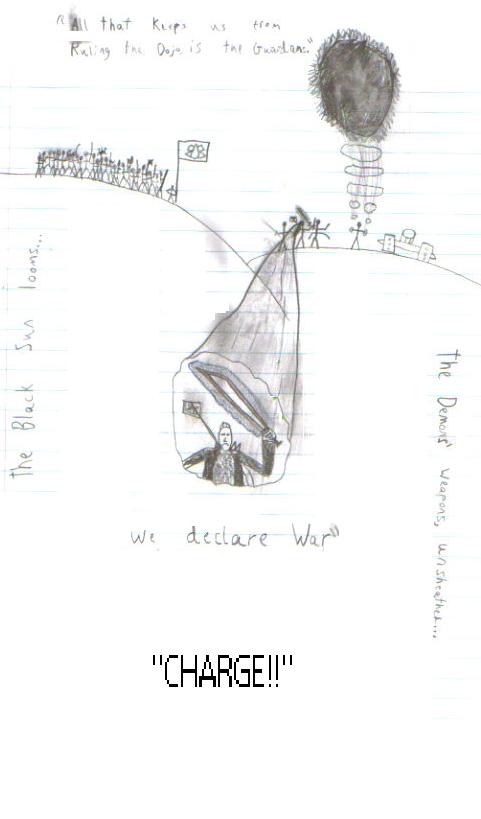 "All that Keeps us from
Ruling the Dojo is the Guardians."
the Black Sun looms...
the Demons' weapons, unsheathed...
we declare War"
"CHARGE!!"